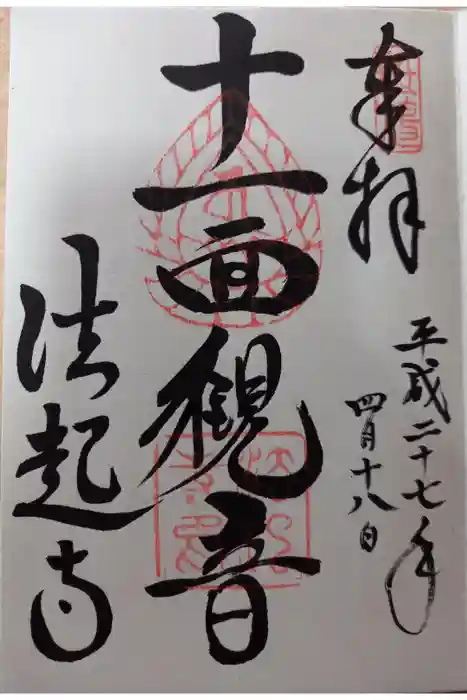 奉拝
平成二十七年
四月十八日
十一面観音
法起寺